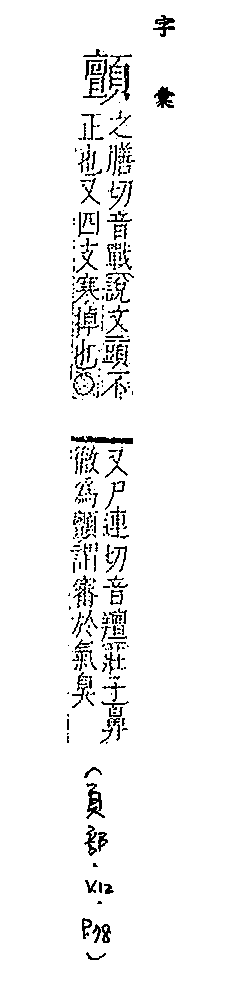 字彙
顫
之膳切音戰說文頭不
正也又四支寒掉也○
又尸連切音羶莊子鼻
徹為顫謂審於氣臭
(頁部.V.12.P.78)